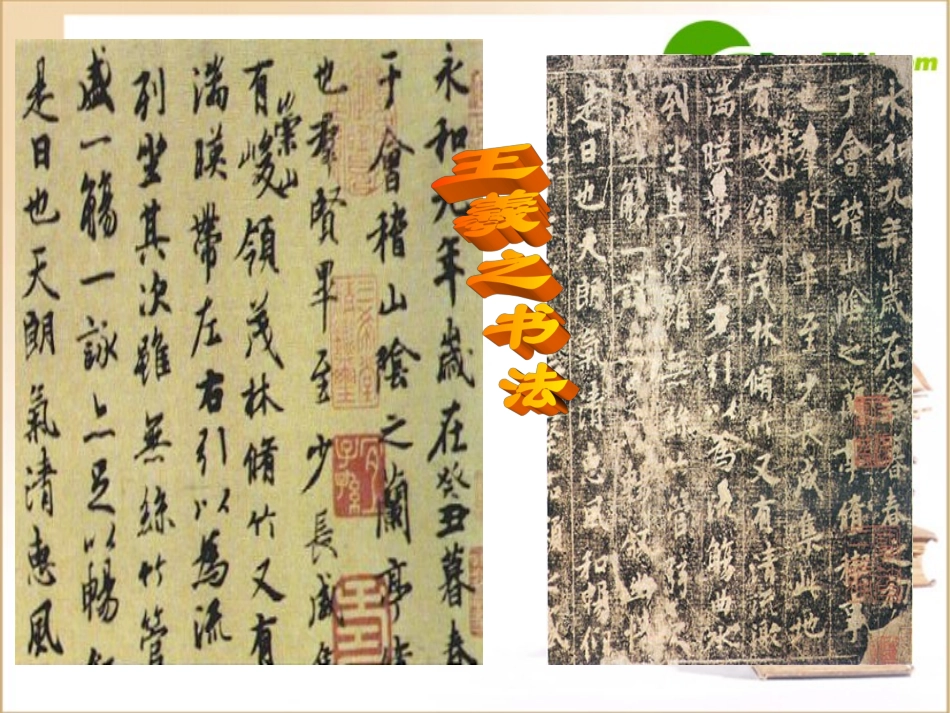 王羲之书法
永和九年歲在癸丑暮春
于會稽山陰之蘭亭
也羣賢畢至少長咸
有崇山峻領茂林脩竹又有
湍暎帶左右引以為流
列坐其次雖無絲竹管
盛一觴一詠亦足以暢
是日也天朗氣清惠風
永和九年歲在癸丑暮春之初
于會稽山陰之蘭亭脩禊事
也羣賢畢至少長咸集此地
有崇山峻領茂林脩竹又有清流激
湍暎帶左右引以為流觴曲水
列坐其次雖無絲竹管弦之
盛一觴一詠亦足以暢敘幽情
是日也天朗氣清惠風和暢仰